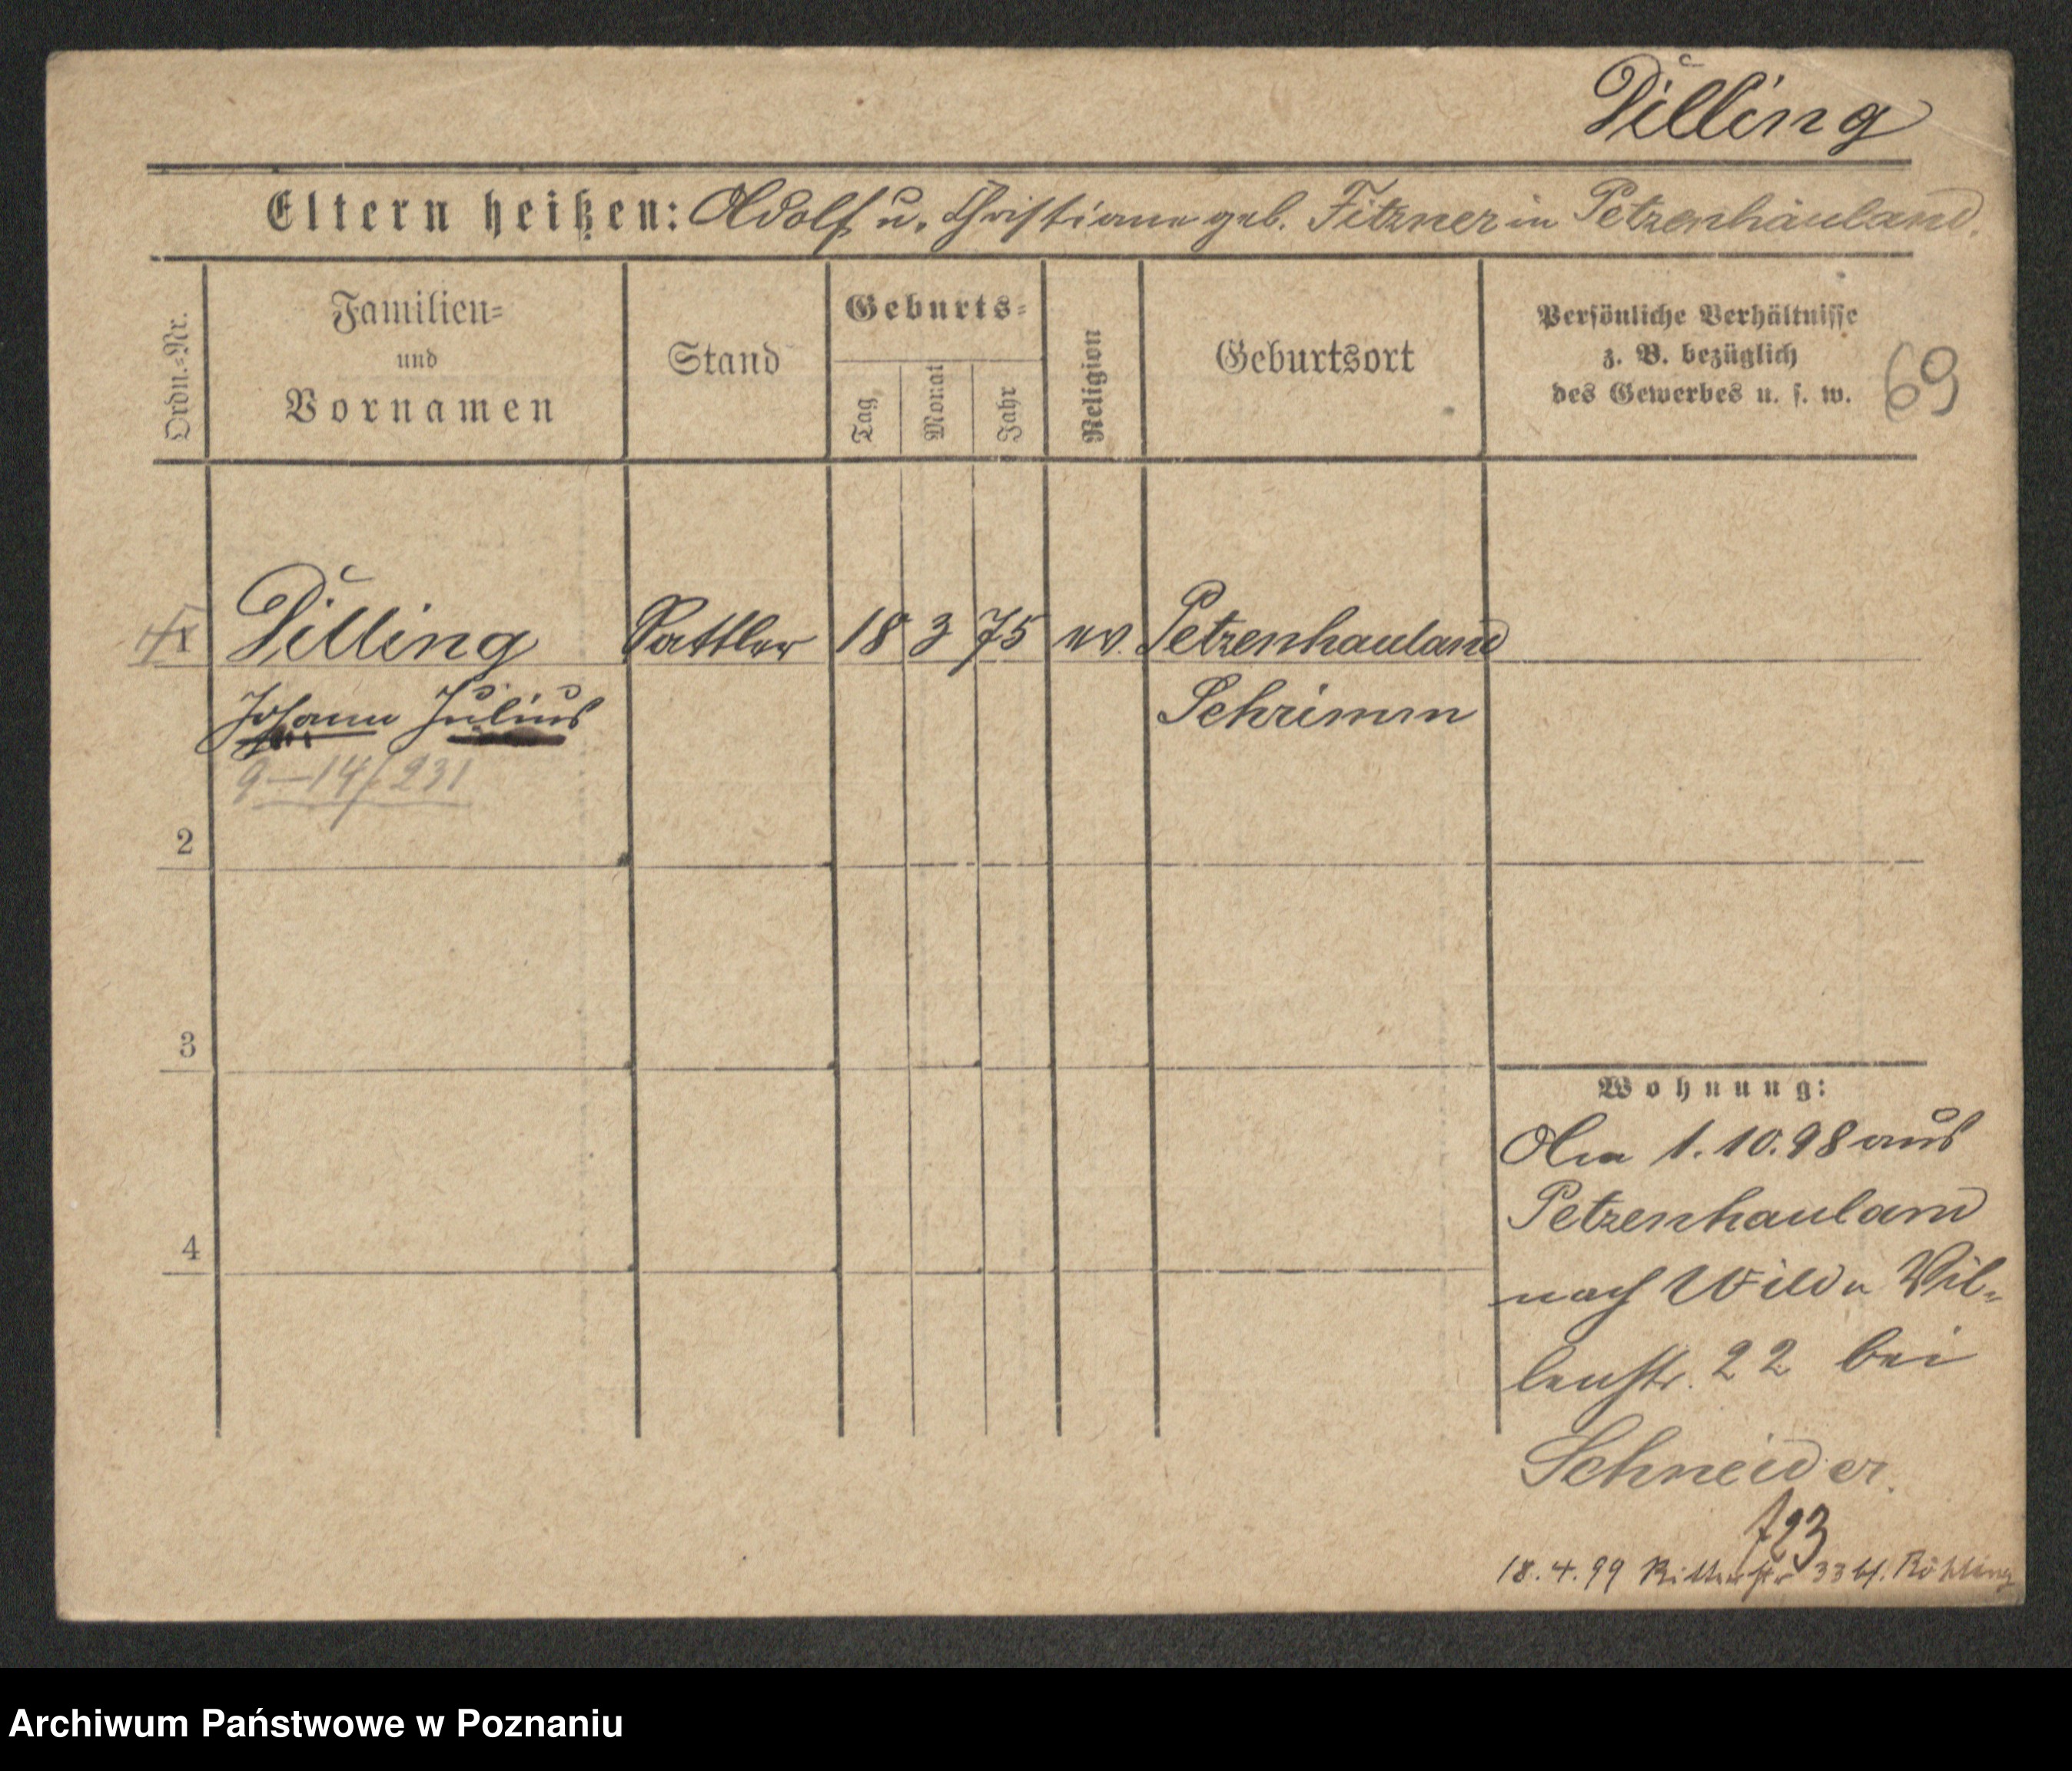 Dilling
Eltern heißen: Adolf u. Christiane geb. Fitzner in Petzenhauland.
Ordn.=Nr.
Familien=
und
Vornamen
Stand
Geburts=
Tag
Monat
Jahr
Religion
Geburtsort
Persönliche Verhältnisse
z. B. bezüglich
des Gewerbes u. s. w.
69
1 Dilling Sattler 18 3 75 ev. Petzenhauland
Johann Julius Schrimm
9—14/231
2
3
4
Wohnung:
Am 1.10.98 aus
Petzenhauland
nach Wilda Vil=
lenstr. 22 bei
Schneider.
723
18.4.99 Ritterstr 33 bf. Röhling
Archiwum Państwowe w Poznaniu